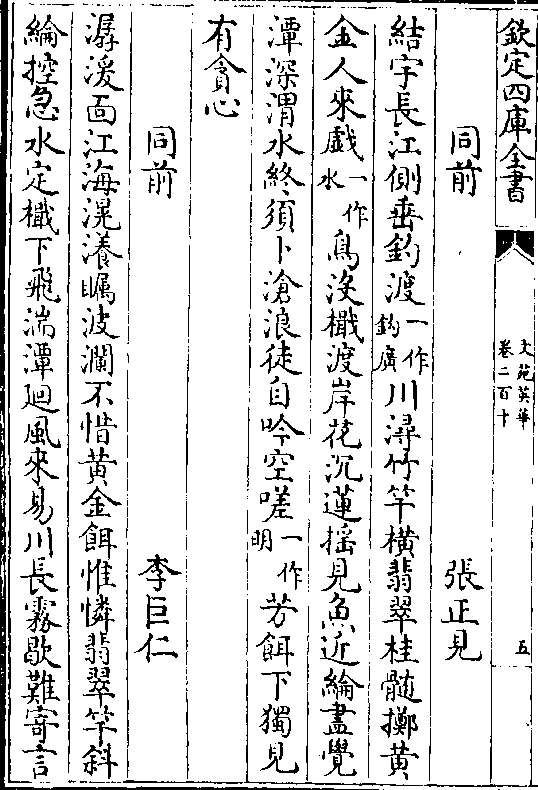 欽定四庫全書
文苑英華
卷二百十
五
同前 張正見
結宇長江側垂釣渡一作鈎廣川潯竹竿横翡翠桂髄擲黄
金人來戯一作水鳥沒檝渡岸花沉蓮揺見魚近綸盡覺
潭深渭水終須卜滄浪徒自吟空嗟一作明芳餌下獨見
有貪心
同前 李巨仁
潺湲面江海滉瀁矚波瀾不惜黄金餌惟憐翡翠竿斜
綸控急水定檝下飛湍潭廻風來易川長霧歇難寄言